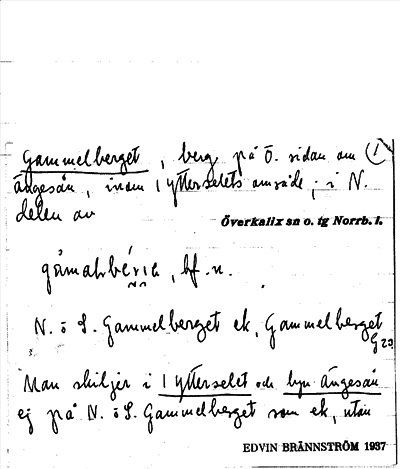 Gammelberget, berg på Ö. sidan om (1
Ängesån, inom Ytterselets område; i N.
delen av
Överkalix sn o. tg Norrb. l.
gåmalbérıe, bf. n.
N. o S. Gammelberget ek, Gammelberget
Man skiljer i Ytterselet och byn Ängesån
ej på N. o S. Gammelberget som ek, utan
EDVIN BRÄNNSTRÖM 1937